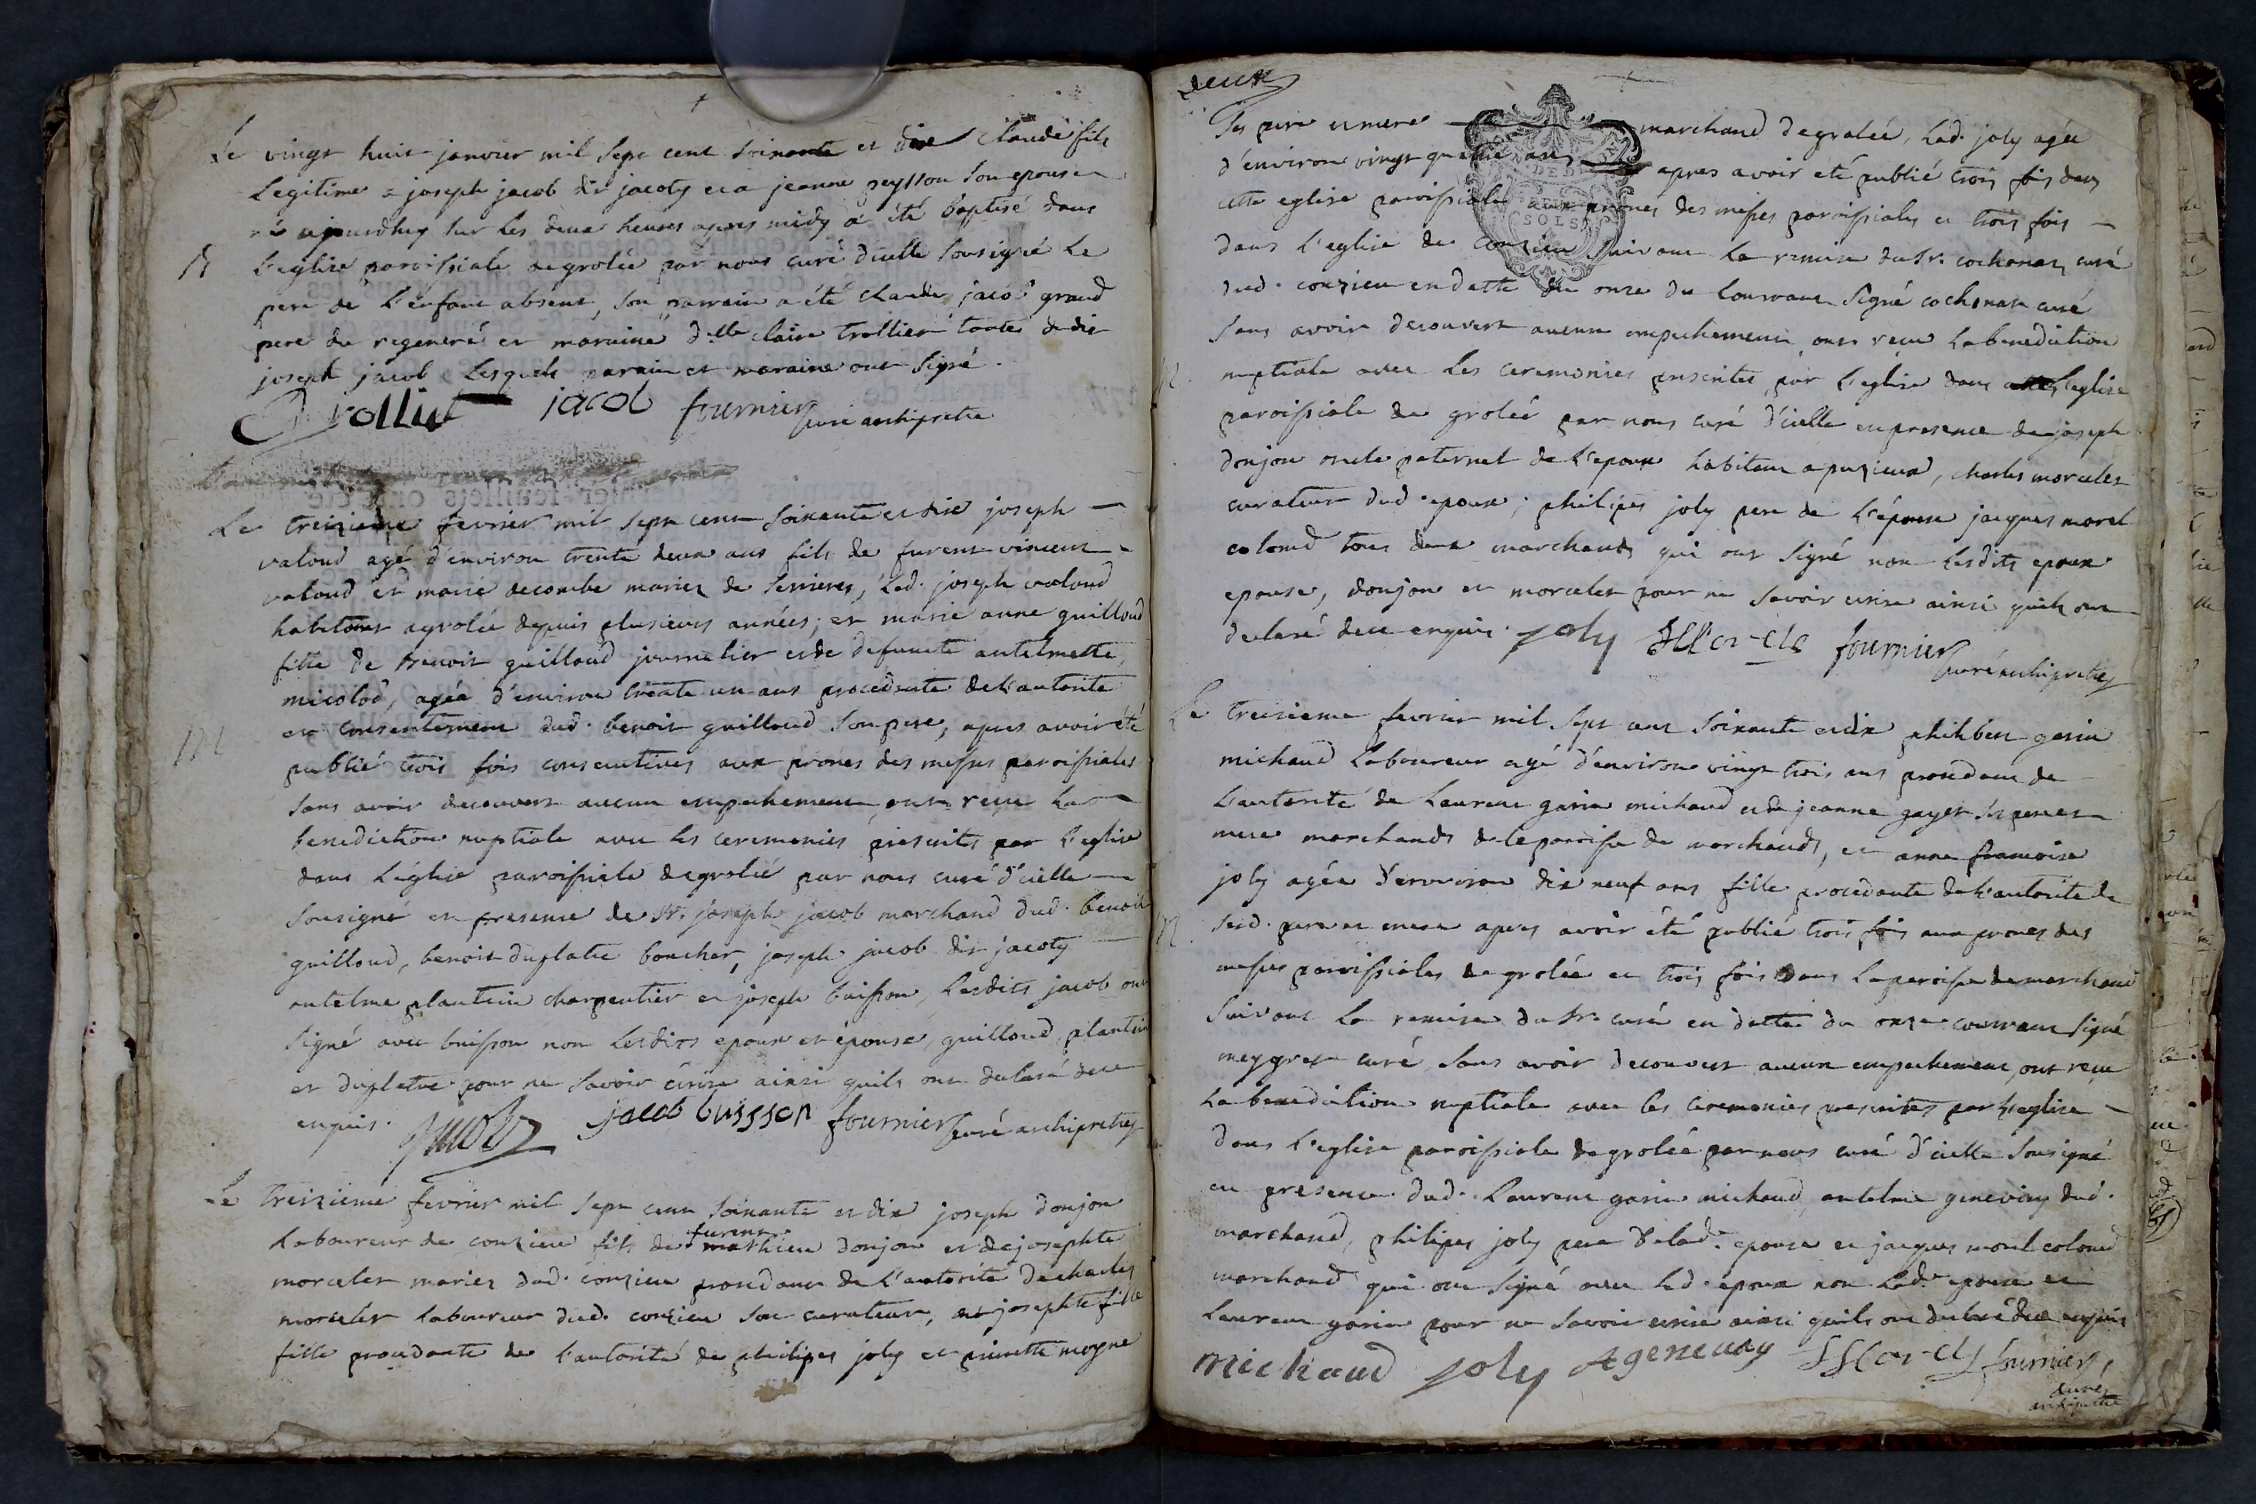 Le vingt huit janvier mil sept cent soixante et dix claude fils
legitime a joseph jacob dit jacoty et a jeanne peysson son epouse
né aujourdhuy sur les deux heures apres midy a été baptisé dans
B l'eglise paroissiale de grolée par nous curé d'icelle sousigné le
pere de l'enfant absent, son parrain a été claude jacob grand
pere du regeneré et maraine d.lle claire trollier tante dudit
joseph jacob lesquels parain et maraine ont signé.
Trolliet jacob fournier curé archipretre
Le treizieme fevrier mil sept cent soixante et dix joseph
valoud agé d'environ trente deux ans fils de furent vincent
valoud et marie decombe mariez de serrieres, led. joseph valoud
habitant a grolée depuis plusieurs années; et marie anne guilloud
fille de benoit guilloud journalier et de defuncte antelmette
micolod, agée d'environ trente un ans procedante de l'autorité
M et consentement dud. benoit guilloud son pere, apres avoir été
publié trois fois consecutives aux prones des messes paroissiales
sans avoir decouvert aucun empechement, ont reçu la
benediction nuptiale avec les ceremonies prescrites par l'eglise
dans l'église paroissiale de grolée par nous curé d'icelle
sousigné en presence de sr. joseph jacob marchand dud. benoit
guilloud, benoit duplatre boucher, joseph jacob dit jacoty
antelme plantin charpentier et joseph buisson, lesdits jacob ont
signé avec buisson non lesdits epoux et épouse, guilloud, plantin
et duplatre pour ne savoir écrire ainsi quils ont declaré de ce
enquis. jacob jacob buisson fournier curé archipretre
Le treizieme fevrier mil sept cent soixante et dix joseph donjon
laboureur de conzieu fils de furent mathieu donjon et de josephte
morcelet mariez dud. conzieu procedant de l'autorité de charles
morcelet laboureur dud. conzieu son curateur, et josephte fille
fille procedante de l'autorité de philipes joly et pierrette moyne
deux
ses pere et mere marchand de grolée, lad. joly agée
d'environ vingt quatre ans apres avoir été publié trois fois dans
cette eglise paroissiale aux prones des messes paroissiales et trois fois
dans l'eglise de conzieu suivant la remise du sr. cochonat curé
dud. conzieu en datte du onze du courant signé cochonat curé
sans avoir decouvert aucun empechement, ont reçu la benediction
M. nuptiale avec les ceremonies prescrites par l'eglise dans l'eglise
paroissiale de grolée par nous curé d'icelle en presence de joseph
donjon oncle paternel de l'epoux habitant a puzieux, charles morcelet
curateur dud. epoux; philipes joly pere de l'épouse jacques morel
coloud tous deux marchands qui ont signé non lesdits epoux
epouse, donjon et morcelet pour ne savoir ecrire ainsi quils ont
declaré de ce enquis. joly fournier
curé archipretre
Le treizieme fevrier mil sept cent soixante et dix philibert garin
michaud laboureur agé d'environ vingt trois ans procedant de
l'autorité de laurent garin michaud et de jeanne gayet ses pere et
mere marchands de la paroisse de marchand, et anne francoise
joly agée d'environ dix neuf ans fille procedante de l'autorité de
M. sesd. pere et mere apres avoir été publié trois fois aux prones des
messes paroissiales de grolée et trois fois dans la paroisse de marchand
suivant la remise du sr. curé en datte du onze courrant signé
meygret curé sans avoir decouvert aucun empechement, ont reçu
la benediction nuptiale avec les ceremonies prescrites par l'eglise
dans l'eglise paroissiale de grolée par nous curé d'icelle sousigné
en presence dud. laurent garin michaud, antelme genevay dud.
marchand, philipes joly pere de lad. epouse et jacques morel coloud
marchand qui ont signé avec led. epoux non lad. epouse et
laurent garin pour ne savoir ecrire ainsi quils ont declaré de ce enquis
michaud joly Agenevay fournier
curé
archipretre